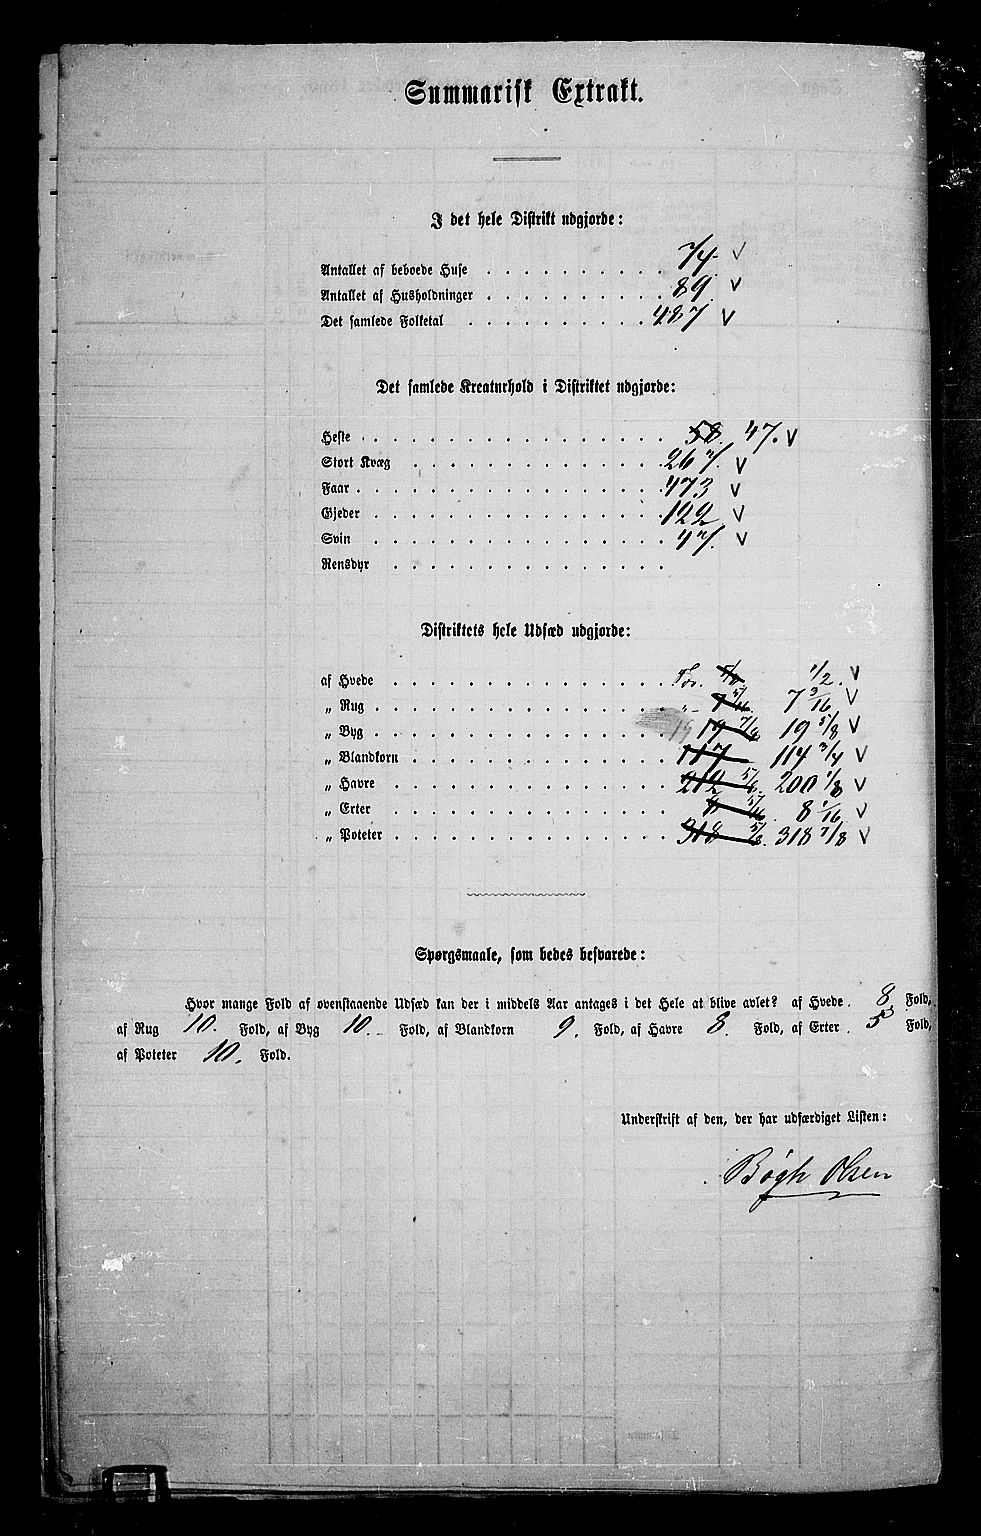 Summarisk Extrakt.
I det hele Distrikt udgjorde:
Antallet af beboede Huse . . . . . . . . . . 74. ✓
Antallet af Husholdninger . . . . . . . . . . 89. ✓
Det samlede Folketal . . . . . . . . . . 487 ✓
Det samlede Kreaturhold i Distriktet udgjorde:
Heste . . . . . . . . . . 58. 47. ✓
Stort Kvæg . . . . . . . . . . ✓
Faar . . . . . . . . . . 473 ✓
Gjeder . . . . . . . . . . 122 ✓
Svin . . . . . . . . . . ✓
Rensdyr . . . . . . . . . .
Distriktets hele Udsæd udgjorde:
af Hvede . . . . . . . . . . Tør. 1/2. ✓
„ Rug . . . . . . . . . . „ 7 3/16 ✓
„ Byg . . . . . . . . . . 19 7/8 19 5/8 ✓
„ Blandkorn . . . . . . . . . . 117 114 3/4 ✓
„ Havre . . . . . . . . . . 212 200 1/8 ✓
„ Erter . . . . . . . . . . 8 1/16 ✓
„ Poteter . . . . . . . . . . 318 5/8. 318 7/8 ✓
Spørgsmaale, som bedes besvarede:
Hvor mange Fold af ovenstaaende Udsæd kan der i middels Aar antages i det Hele at blive avlet? af Hvede . 8. Fold,
af Rug 10. Fold, af Byg 10. Fold, af Blandkorn 9. Fold, af Havre 8. Fold, af Erter . 5 Fold,
af Poteter 10. Fold.
Underskrift af den, der har udfærdiget Listen:
Bøgh Olsen